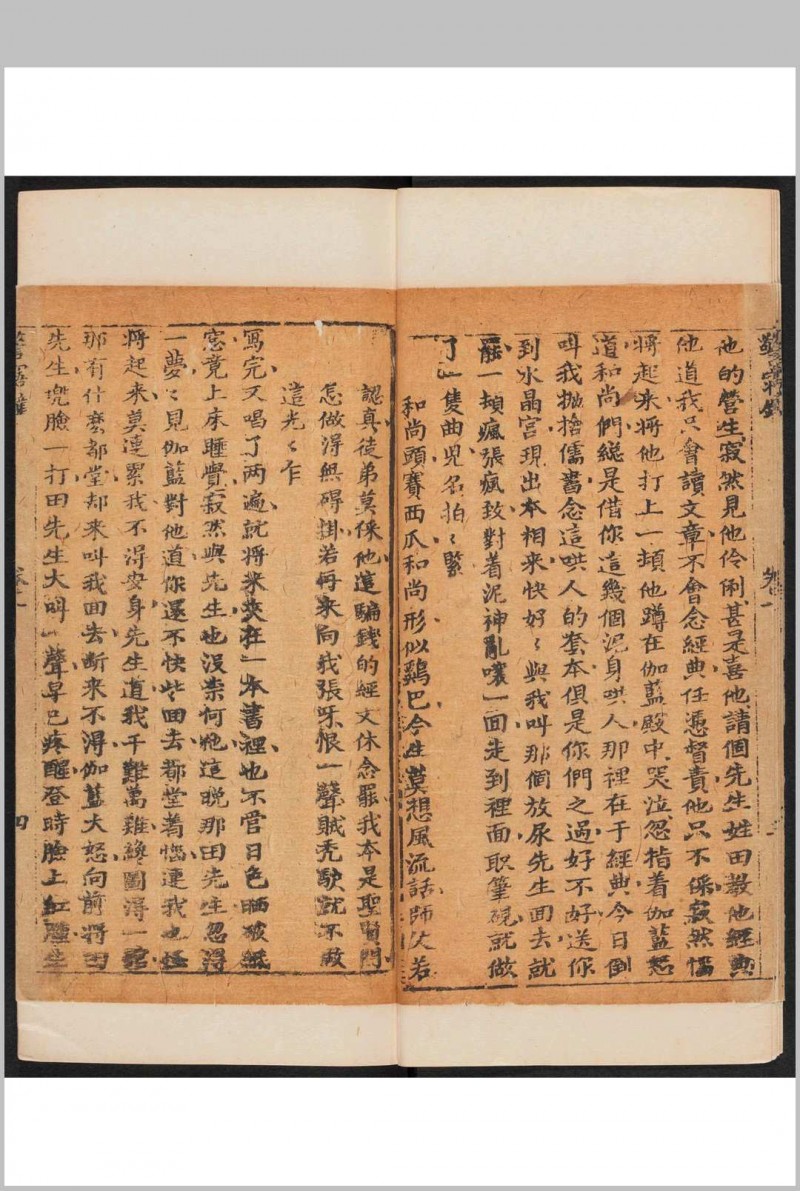 他的營生寂然見他伶俐甚是喜他請個先生姓田教他經典
他道我只會讀文章不會念經典任憑督責他只不保寂然惱
將起來將他打上一頓他蹲在伽藍殿中哭泣忽指着伽藍怒
道和尚們總是借你這幾個泥身哄人那裡在于經典今日倒
叫我拋擔儒書念這哄人的套本俱是你們之過好不好送你
到水晶宮現出本相来快好〻與我叫那個放尿先生面去就
罷一頓瘋張瘋致對着泥神亂嚷一面走到裡面取筆硯就做
了一隻曲兒名拍〻緊
和尚頭賽西瓜和尚形似鷄巴今生莫想風流話師父若
認真徒弟莫保他這騙錢的經文休念罷我本是聖賢門
怎做得無碍掛若再来向我張牙恨一聲賊禿驢就不敢
這光〻乍
寫完又唱了两遍就將来夾在一本書裡也不管日色晒破紙
窓竟上床睡覺寂然與先生也沒柰何他這晚那田先生忽得
一夢〻見伽藍對他道你還不快些回去都堂着惱連我也怪
將起来莫連累我不得安身先生道我千難萬難纔圖得一舘
那有什麽都堂却来叫我面去断来不得伽藍大怒向前將田
先生兜臉一打田先生大叫一聲早已疼醒登時臉上紅腫生
卷一
四